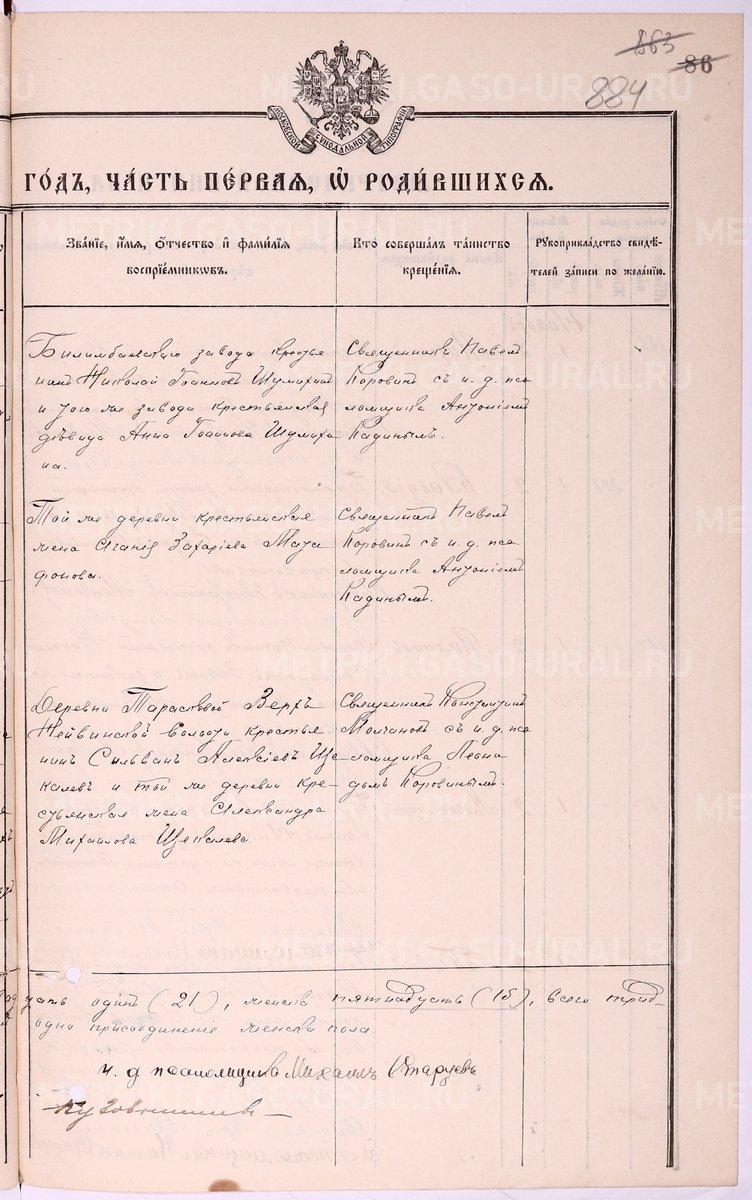 863
86
884
МОСКОВСКОЙ СѴНОДАЛЬНОЙ ТИПОГРАФІИ
ГО́ДЪ, ЧА́СТЬ ПЕ́РВАЯ, Ѡ҆ РОДИ́ВШИХСѦ.
Зва́нїе, и҆́мѧ, ѻ҆́тчество и҆ фами́лїѧ
воспрїе́мникѡвъ.
Кто̀ соверша́лъ та́инство
креще́нїѧ.
Рꙋкоприкла́дство свидѣ́-
телей за́писи по жела́нїю.
Билимбаевскаго завода кресть
янинъ Николай Іоанновъ Шумихинъ
и того же завода крестьянская
дѣвица Анна Іоаннова Шумихи
на.
Священникъ Павелъ
Коровинъ съ и. д. пса
ломщика Антоніемъ
Кадинымъ.
Той же деревни крестьянская
жена Аганія Захаріева Мата
фонова.
Священникъ Павелъ
Коровинъ съ и. д. пса
ломщика Антоніемъ
Кадинымъ.
Деревни Тарасковой Верхъ
Нейвинской волости крестья
нинъ Сильванъ Алексіевъ Ще
калевъ и той же деревни кре
стьянская жена Александра
Михаилова Щекалева.
Священникъ Константинъ
Молчановъ съ и. д. пса
ломщика Леони
домъ Коровинымъ.
цать одинъ (21), женска пятнадцать (15), всего трид-
одно присоединеніе женска пола.
и. д псаломщика Михаилъ Старцевъ
METRIKI.GASO-URAL.RU